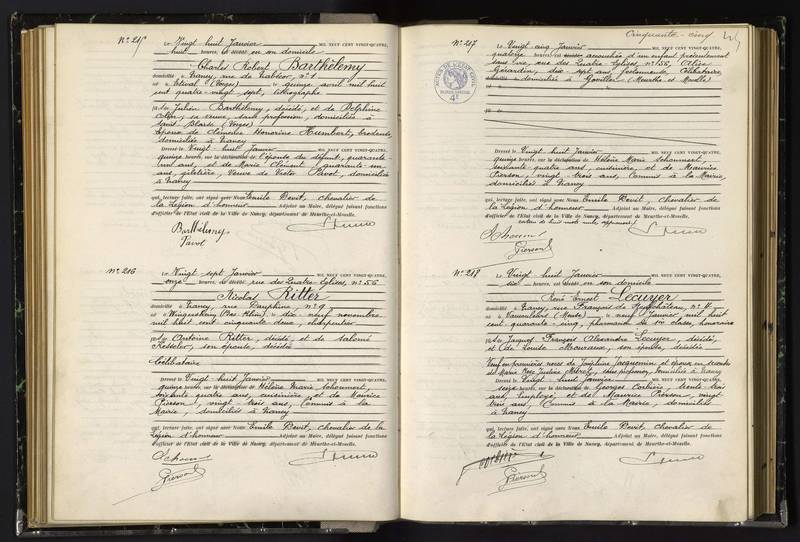 N° 215
Le Vingt huit Janvier MIL NEUF CENT VINGT-QUATRE,
huit heures, est décédé en son domicile
Charles Robert Barthélemy
domicilié à Nancy, rue de Nabécor, n° 1
né à Etival (Vosges) le quinze avril mil huit
cent quatre-vingt-sept, lithographe
fils de Julien Barthélemy, décédé, et de Delphine
sa veuve, sans profession, domiciliée à
(Vosges)
Epoux de Clémence Honorine Humbert, brodeuse,
domiciliée à Nancy
Dressé le Vingt huit Janvier MIL NEUF CENT VINGT-QUATRE,
quinze heures, sur la déclaration de l'épouse du défunt, quarante
ans, et de Marie Clément, quarante-un
ans, giletière, Veuve de Victor Pavot, domiciliée
à Nancy
qui, lecture faite, ont signé avec Nous Emile Devit, chevalier de
la Légion d'honneur Adjoint au Maire, délégué faisant fonctions
d'officier de l'Etat civil de la Ville de Nancy, département de Meurthe-et-Moselle.
Barthélemy
Pavot
N° 216
Le Vingt sept Janvier MIL NEUF CENT VINGT-QUATRE,
onze heures, est décédé rue des Quatre-Eglises, n° 56
Nicolas Ritter
domicilié à Nancy, rue Dauphine, n° 9
né à (Bas-Rhin) le dix-neuf novembre
mil huit cent cinquante deux, charpentier
fils de Antoine Ritter, décédé, et de Salomé
Kesseler, son épouse, décédée
Célibataire
Dressé le Vingt huit Janvier MIL NEUF CENT VINGT-QUATRE,
quinze heures, sur la déclaration de Hélène Marie Schoumert,
soixante quatre ans, cuisinière, et de Maurice
Pierson, vingt-trois ans, Commis à la
Mairie, domiciliés à Nancy
qui, lecture faite, ont signé avec Nous Emile Devit, chevalier de la
Légion d'honneur Adjoint au Maire, délégué faisant fonctions
d'officier de l'Etat civil de la Ville de Nancy, département de Meurthe-et-Moselle.
Pierson
Cinquante-cinq
N° 217
Le Vingt-cinq Janvier MIL NEUF CENT VINGT-QUATRE,
quatorze heures, est accouchée d'un enfant présentement
sans vie, rue des Quatre-Eglises, n° 56, Alice
Girardin, dix-sept ans, Célibataire
domiciliée à (Meurthe et Moselle)
Dressé le Vingt huit Janvier MIL NEUF CENT VINGT-QUATRE,
quinze heures, sur la déclaration de Hélène Marie Schoumert,
soixante quatre ans, cuisinière, et de Maurice
Pierson, vingt-trois ans, Commis à la Mairie
domiciliés à Nancy
qui, lecture faite, ont signé avec Nous Emile Devit, chevalier de
la Légion d'honneur Adjoint au Maire, délégué faisant fonctions
d'officier de l'Etat civil de la Ville de Nancy, département de Meurthe-et-Moselle.
Pierson
N° 218
Le Vingt-huit Janvier MIL NEUF CENT VINGT-QUATRE,
heures, est décédé en son domicile
René Ernest Lecuyer
domicilié à Nancy, rue François de Neufchâteau, n°
né à Vaucouleurs (Meuse) le neuf Janvier mil huit
cent quarante-cinq, pharmacien de 1re classe, honoraire
fils de Jacques François Alexandre Lecuyer, décédé,
et de Louise son épouse, décédée
Veuf en premières noces de Joséphine Jacquemin et époux en secondes
de Marie Rose Justine sans profession, domiciliée à Nancy
Dressé le Vingt huit Janvier MIL NEUF CENT VINGT-QUATRE,
seize heures, sur la déclaration de Georges trente trois
ans, employé, et de Maurice Pierson, vingt-
trois ans, Commis à la Mairie, domiciliés
à Nancy
qui, lecture faite, ont signé avec Nous Emile Devit, chevalier de
la Légion d'honneur Adjoint au Maire, délégué faisant fonctions
d'officier de l'Etat civil de la Ville de Nancy, département de Meurthe-et-Moselle.
Pierson